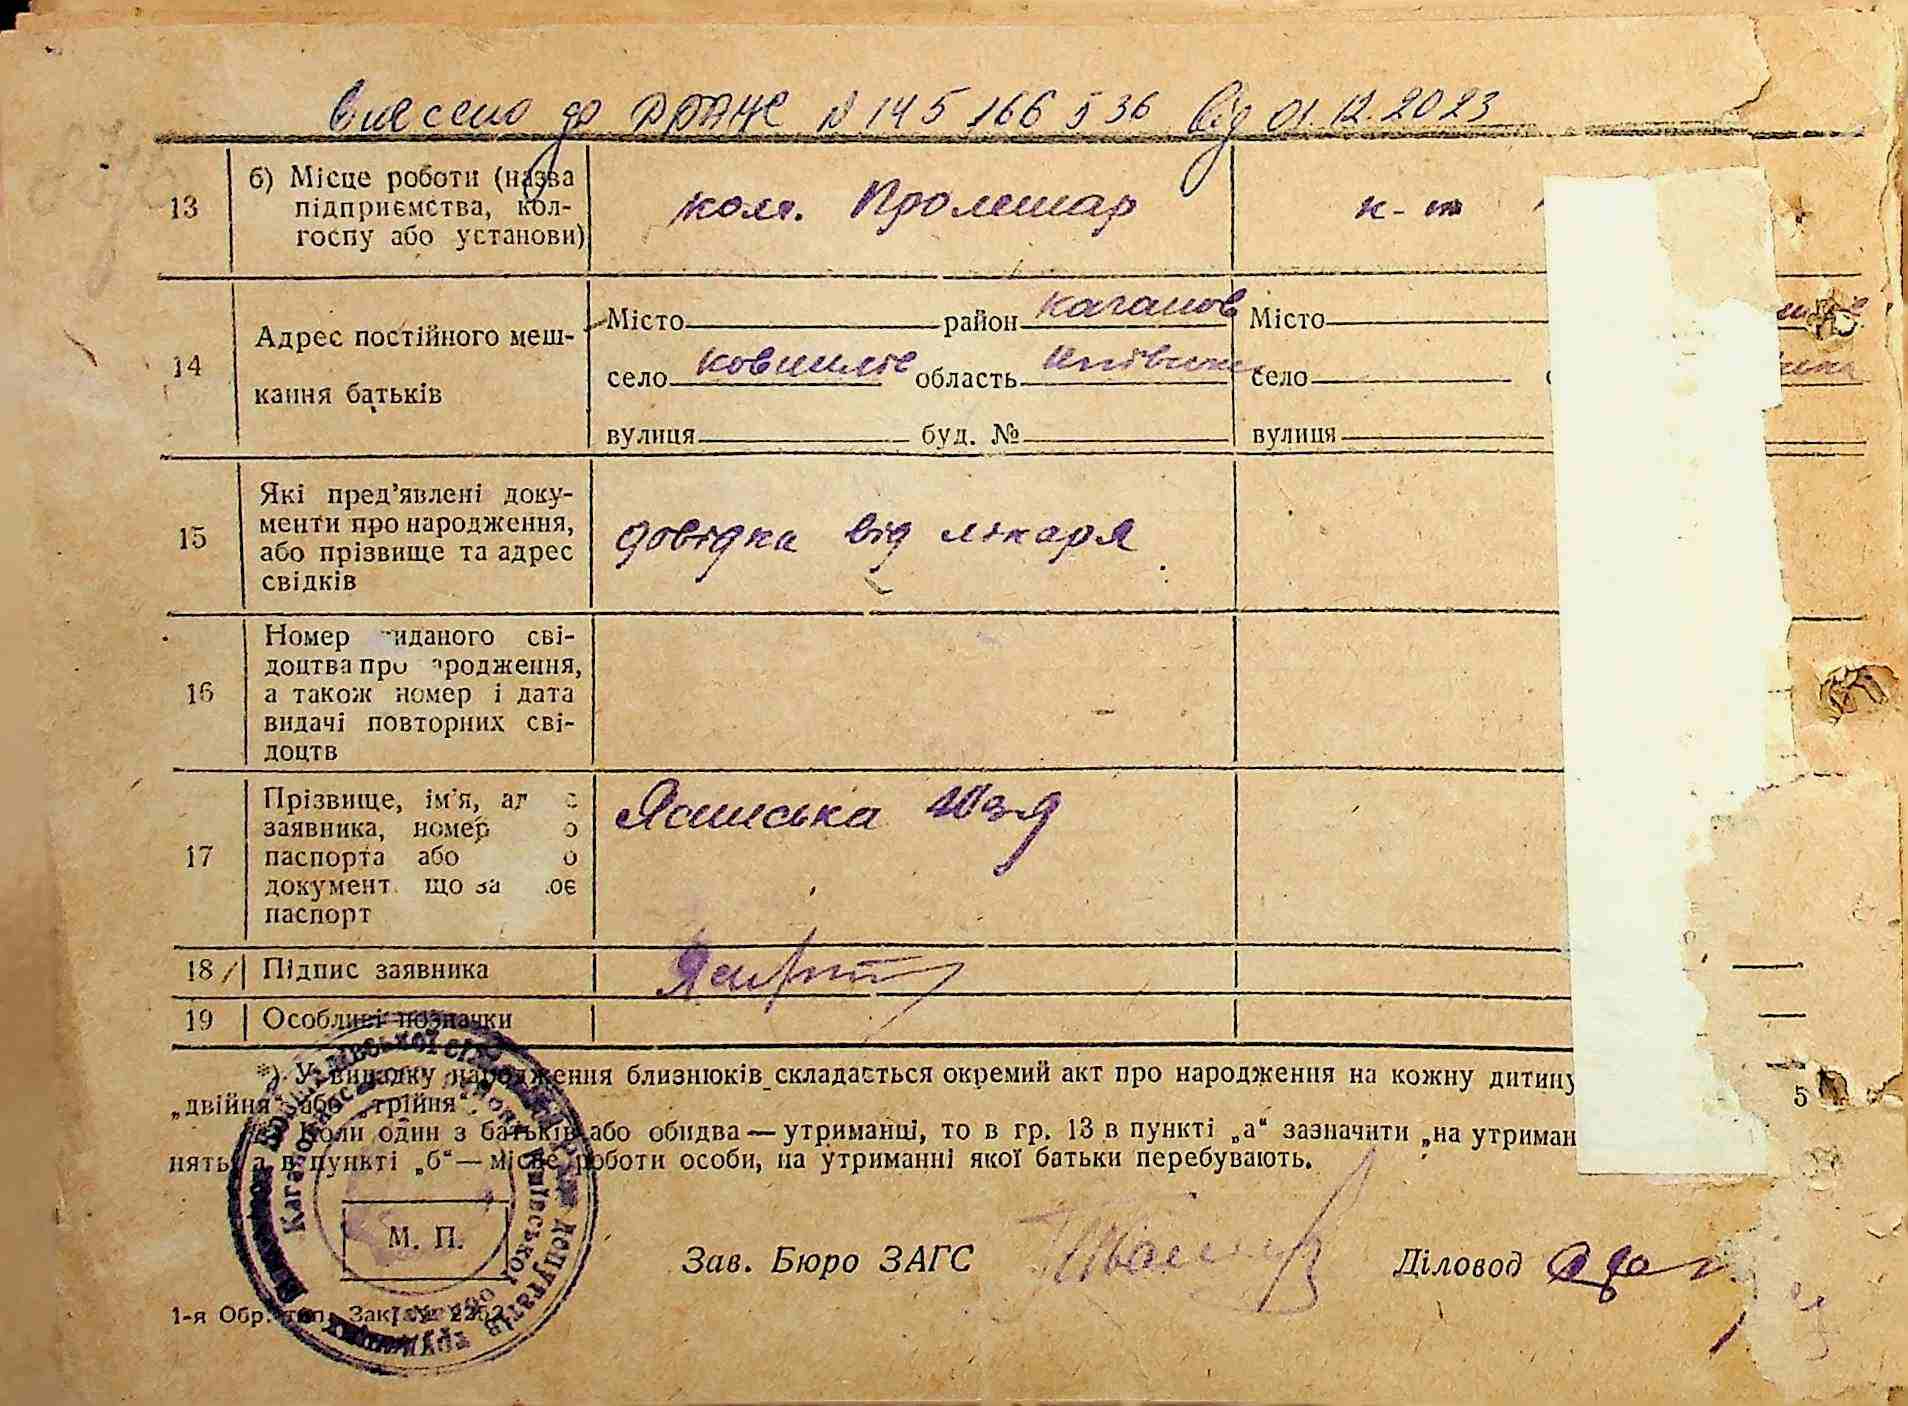 Внесено до ДРАЦС № 145 166 536 від 01.12.2023
13 б) Місце роботи (назва підприємства, колгоспу або установи)
кол. Пролетар
к-т
14 Адрес постійного мешкання батьків
Місто район Каганов Місто
село Ковшилів область село
вулиця буд. № вулиця
15 Які пред’явлені документи про народження, або прізвище та адрес свідків
довідка від лікаря
16 Номер иданого свідоцтва про ародження, а також номер і дата видачі повторних свідоцтв
17 Прізвище, ім’я, заявника, номер паспорта або документ що паспорт
Ясинська Юзя
18 Підпис заявника
19 Особливі позначки
*) У випадку народження близнюків складається окремий акт про народження на кожну дитину
„двійня“ або „трійня“.
Коли один з батьків або обидва — утриманці, то в гр. 13 в пункті „а“ зазначити „на утриман
нять, а в пункті „б“ — місце роботи особи, на утриманні якої батьки перебувають.
М. П.
Зав. Бюро ЗАГС
Діловод
1-я Обр. тип. Зак. № 2252
5